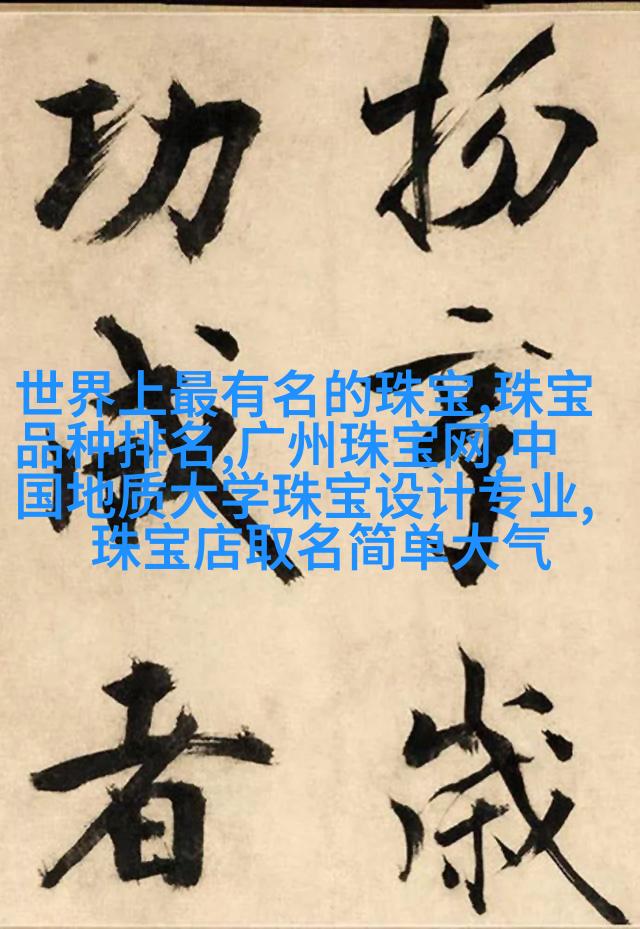 世界上最有名的珠宝,珠宝
品种排名,广州珠宝网,中
国地质大学珠宝设计专业,
珠宝店取名简单大气
方歲
功成者